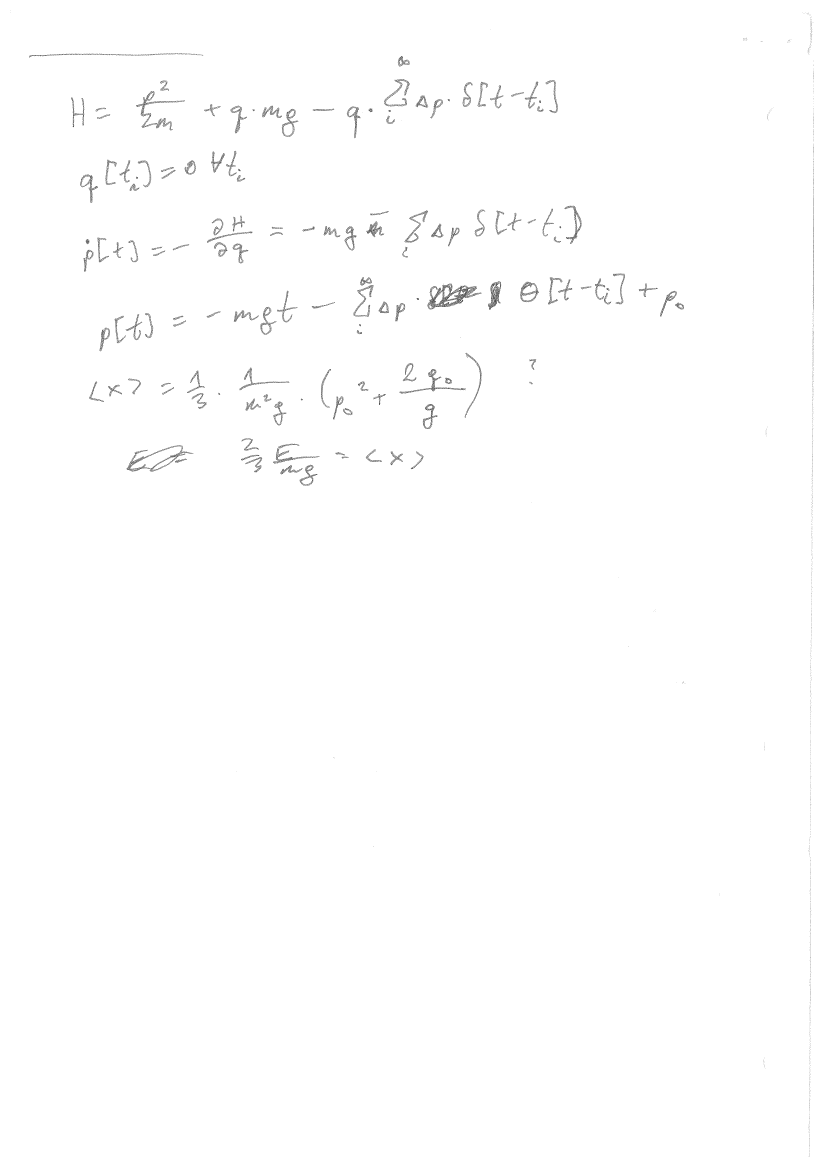 H = p²/2m + q·mg − q·∑_i^∞ Δp·δ[t−t_i]
q[t_i] = 0 ∀t_i
ṗ[t] = − ∂H/∂q = −mg − ∑_i Δp δ[t−t_i]
p[t] = −mgt − ∑_i^∞ Δp · θ[t−t_i] + p₀
<x> = 1/3 · 1/m²g · (p₀² + 2q₀/g) ?
2/3 E/mg = <x>